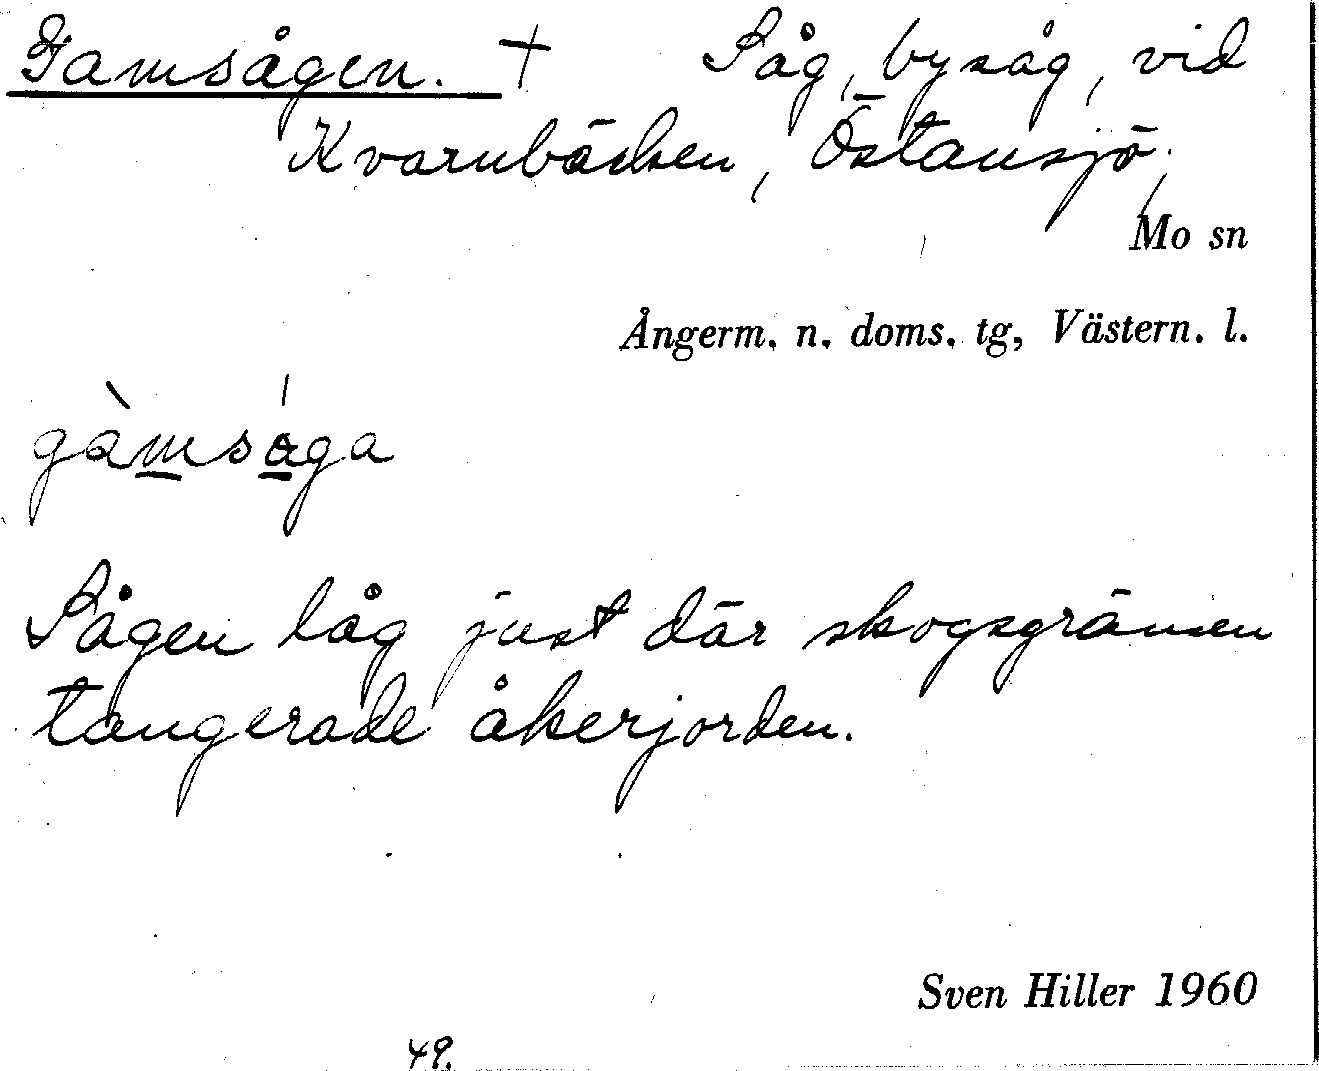 Gamsågen. † Såg, bysåg, vid
Kvarnbäcken, Östansjö,
Mo sn
Ångerm. n. doms. tg, Västern. l.
gàmsága
Sågen låg just där skogsgränsen
tangerade åkerjorden.
Sven Hiller 1960
49.